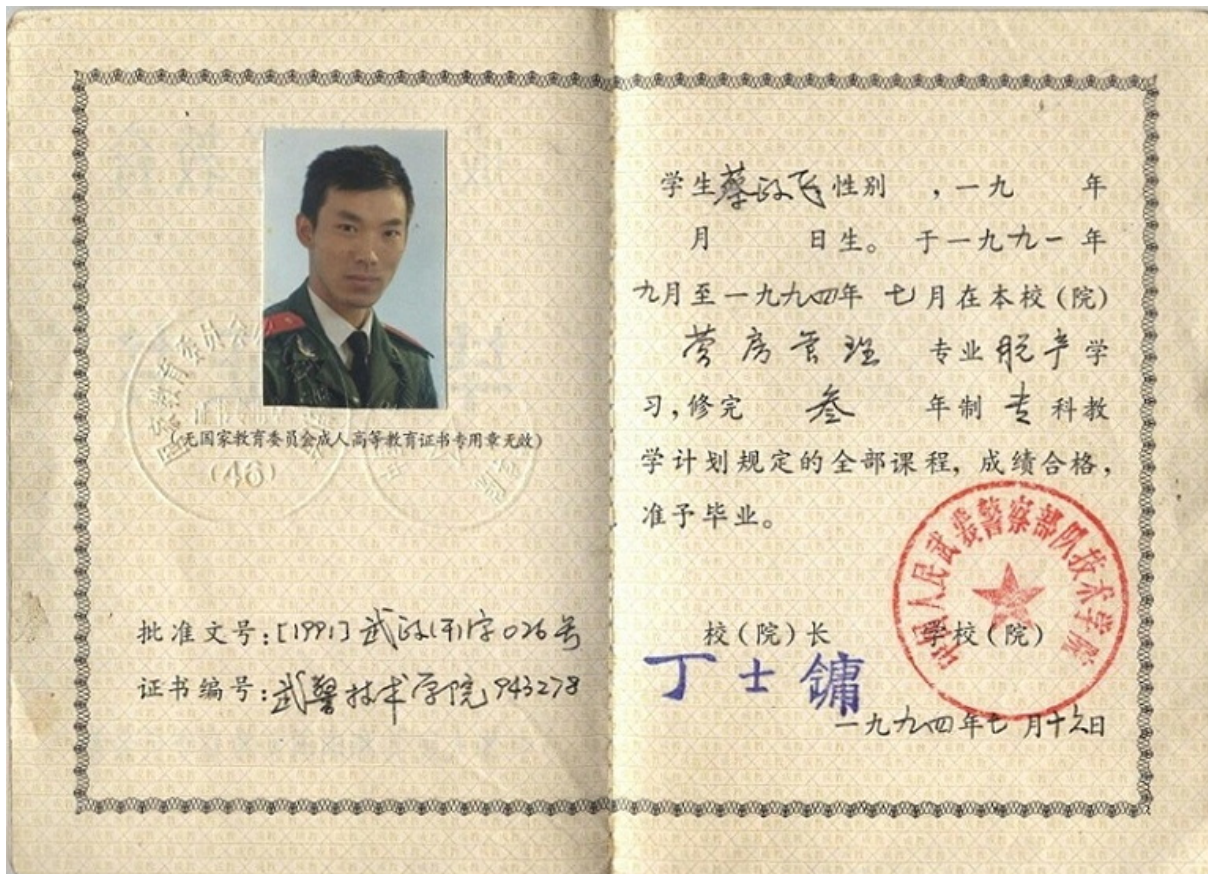 (无国家教育委员会成人高等教育证书专用章无效)
(46)
批准文号:[1991]武政(干)字026号
证书编号:武警技术学院943278
学生蔡政飞性别 ,一九 年
月 日生。于一九九一年
九月至一九九四年 七月在本校(院)
营房管理 专业脱产学
习,修完 叁 年制 专 科教
学计划规定的全部课程,成绩合格,
准予毕业。
中国人民武装警察部队技术学院
校(院)长 学校(院)
丁士镛
一九九四年七月十六日